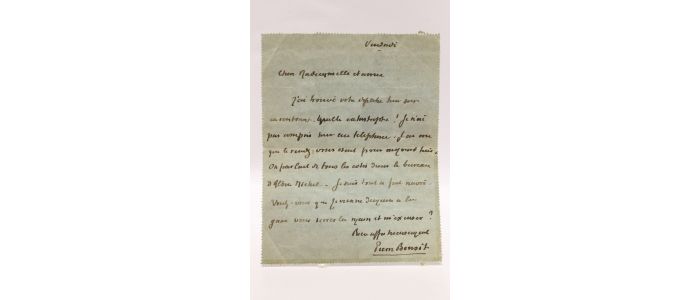 Vendredi
Chère Mademoiselle et amie
J'ai trouvé votre dépêche hier soir
en rentrant. Quelle catastrophe ! Je n'ai
pas compris sur au téléphone. J'ai cru
que le rendez-vous était pour aujourd'hui.
On parlait de tous les cotés dans le bureau
d'Albin Michel - Je suis tout à fait navré.
Voulez-vous que je vienne à la
gare vous serrer la main et m'excuser ?
Bien affectueusement
Pierre Benoit